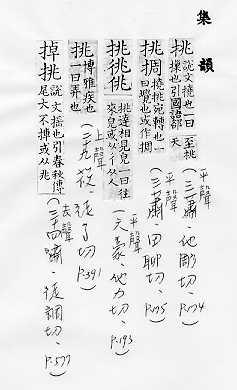 集韻
挑 說文撓也一曰摷也引國語郤至挑天(平聲 三蕭・他彫切・P.174)
挑㨄 撓挑宛轉也一曰覺也或作㨄(平聲 三蕭・田聊切・P.175)
挑佻 挑達相見皃一曰往來皃或从彳从人(平聲 六豪・他刀切・P.193)
挑 博雅疾也一曰弄也(上聲 二十九筱・徒了切・P.391)
掉挑 說文搖也引春秋傳尾大不掉或从兆(去聲 三十四嘯・徒調切・P.577)